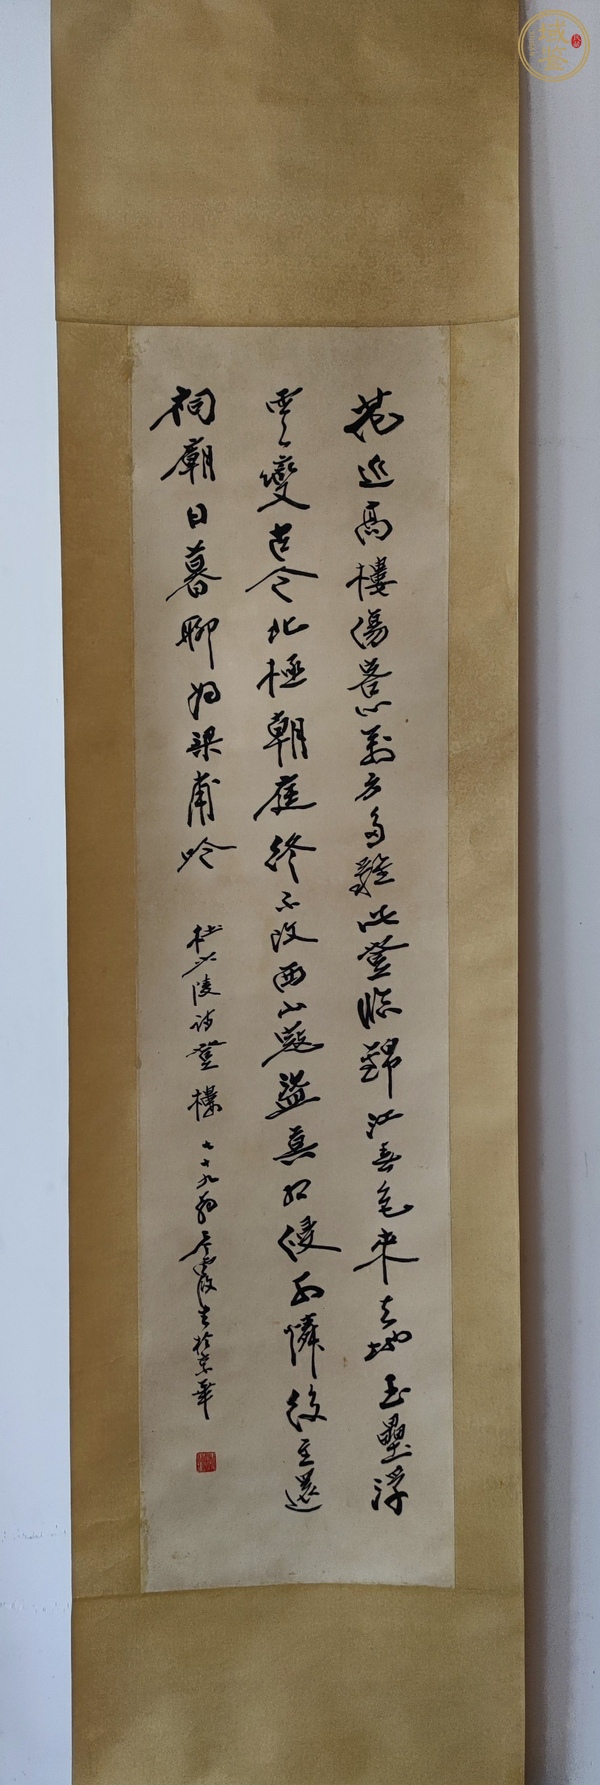 花近高樓傷客心萬方多難此登臨錦江春色來天地玉壘浮
雲變古今北極朝廷終不改西山寇盜莫相侵可憐後主還
祠廟日暮聊為梁甫吟
杜少陵詩登樓 七十九翁 書於京華